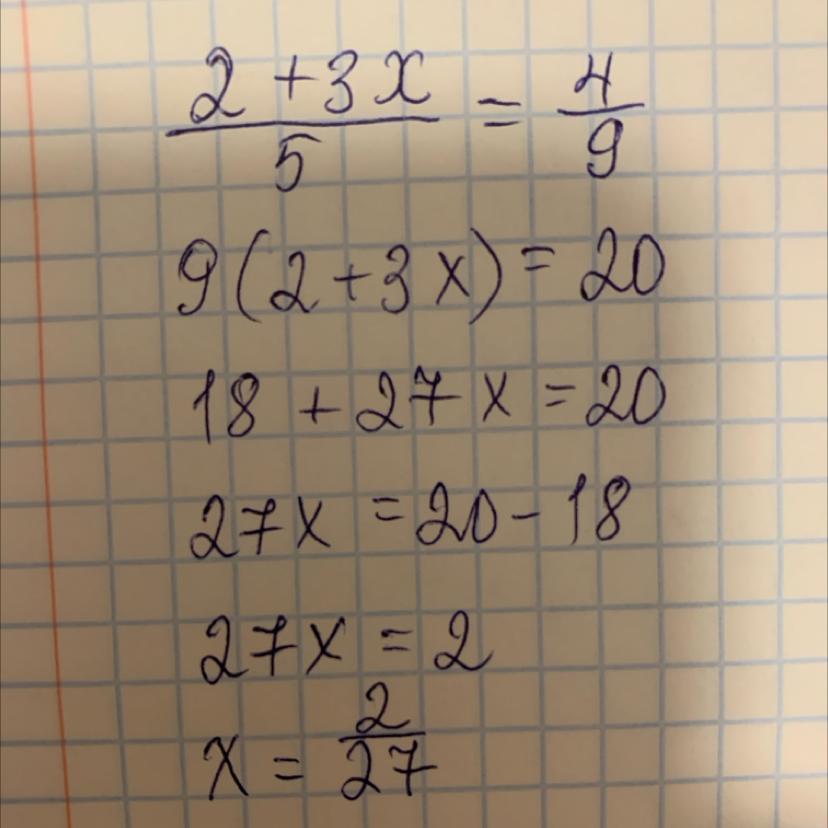 (2 + 3x)/5 = 4/9
9(2 + 3x) = 20
18 + 27x = 20
27x = 20 - 18
27x = 2
x = 2/27